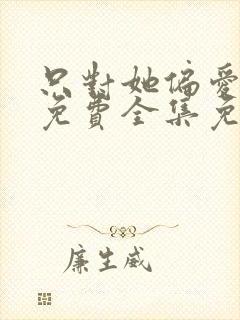 只對她偏愛
免費全集免
廉生威